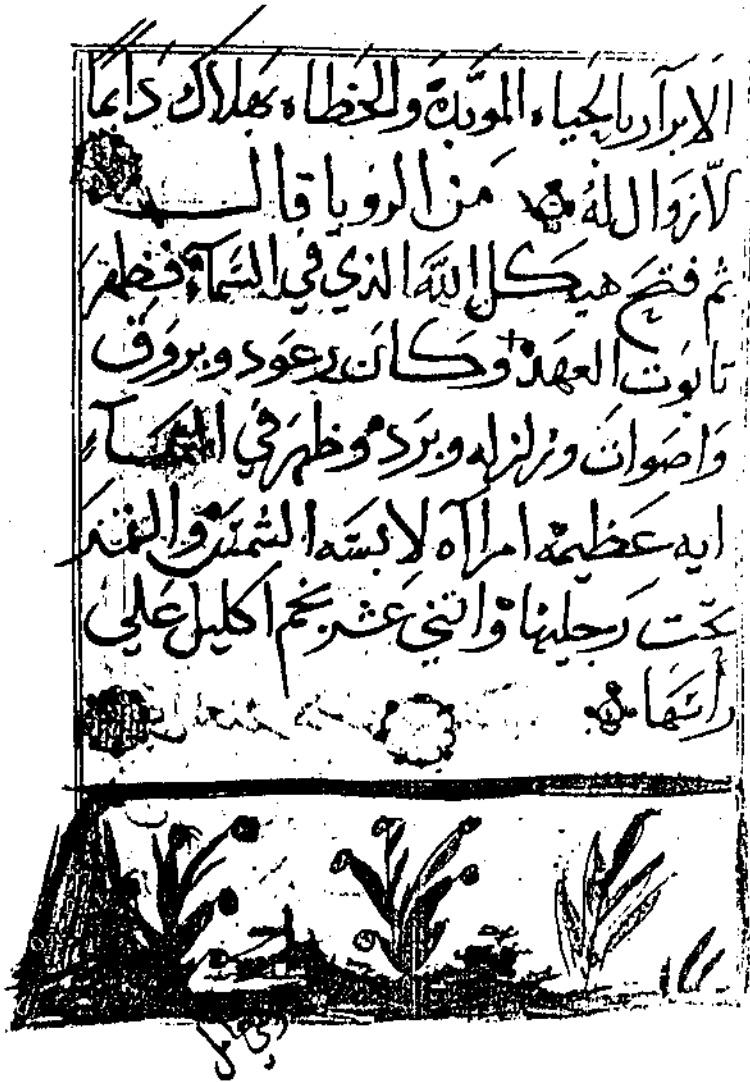 الابرآر بالحياه الموبدة والخطاه بهلاك دايما
لا زوال له من الرويا قال
ثم فتح هيكل الله الذي في السمآ فظهر
تابوت العهد وكانت رعود وبروق
واصوات وزلزله وبرد وظهر في السمآء
ايه عظيمه امراآه لابسه الشمس والقمر
تحت رجليها واثني عشر نجم اكليل علي
رأسها